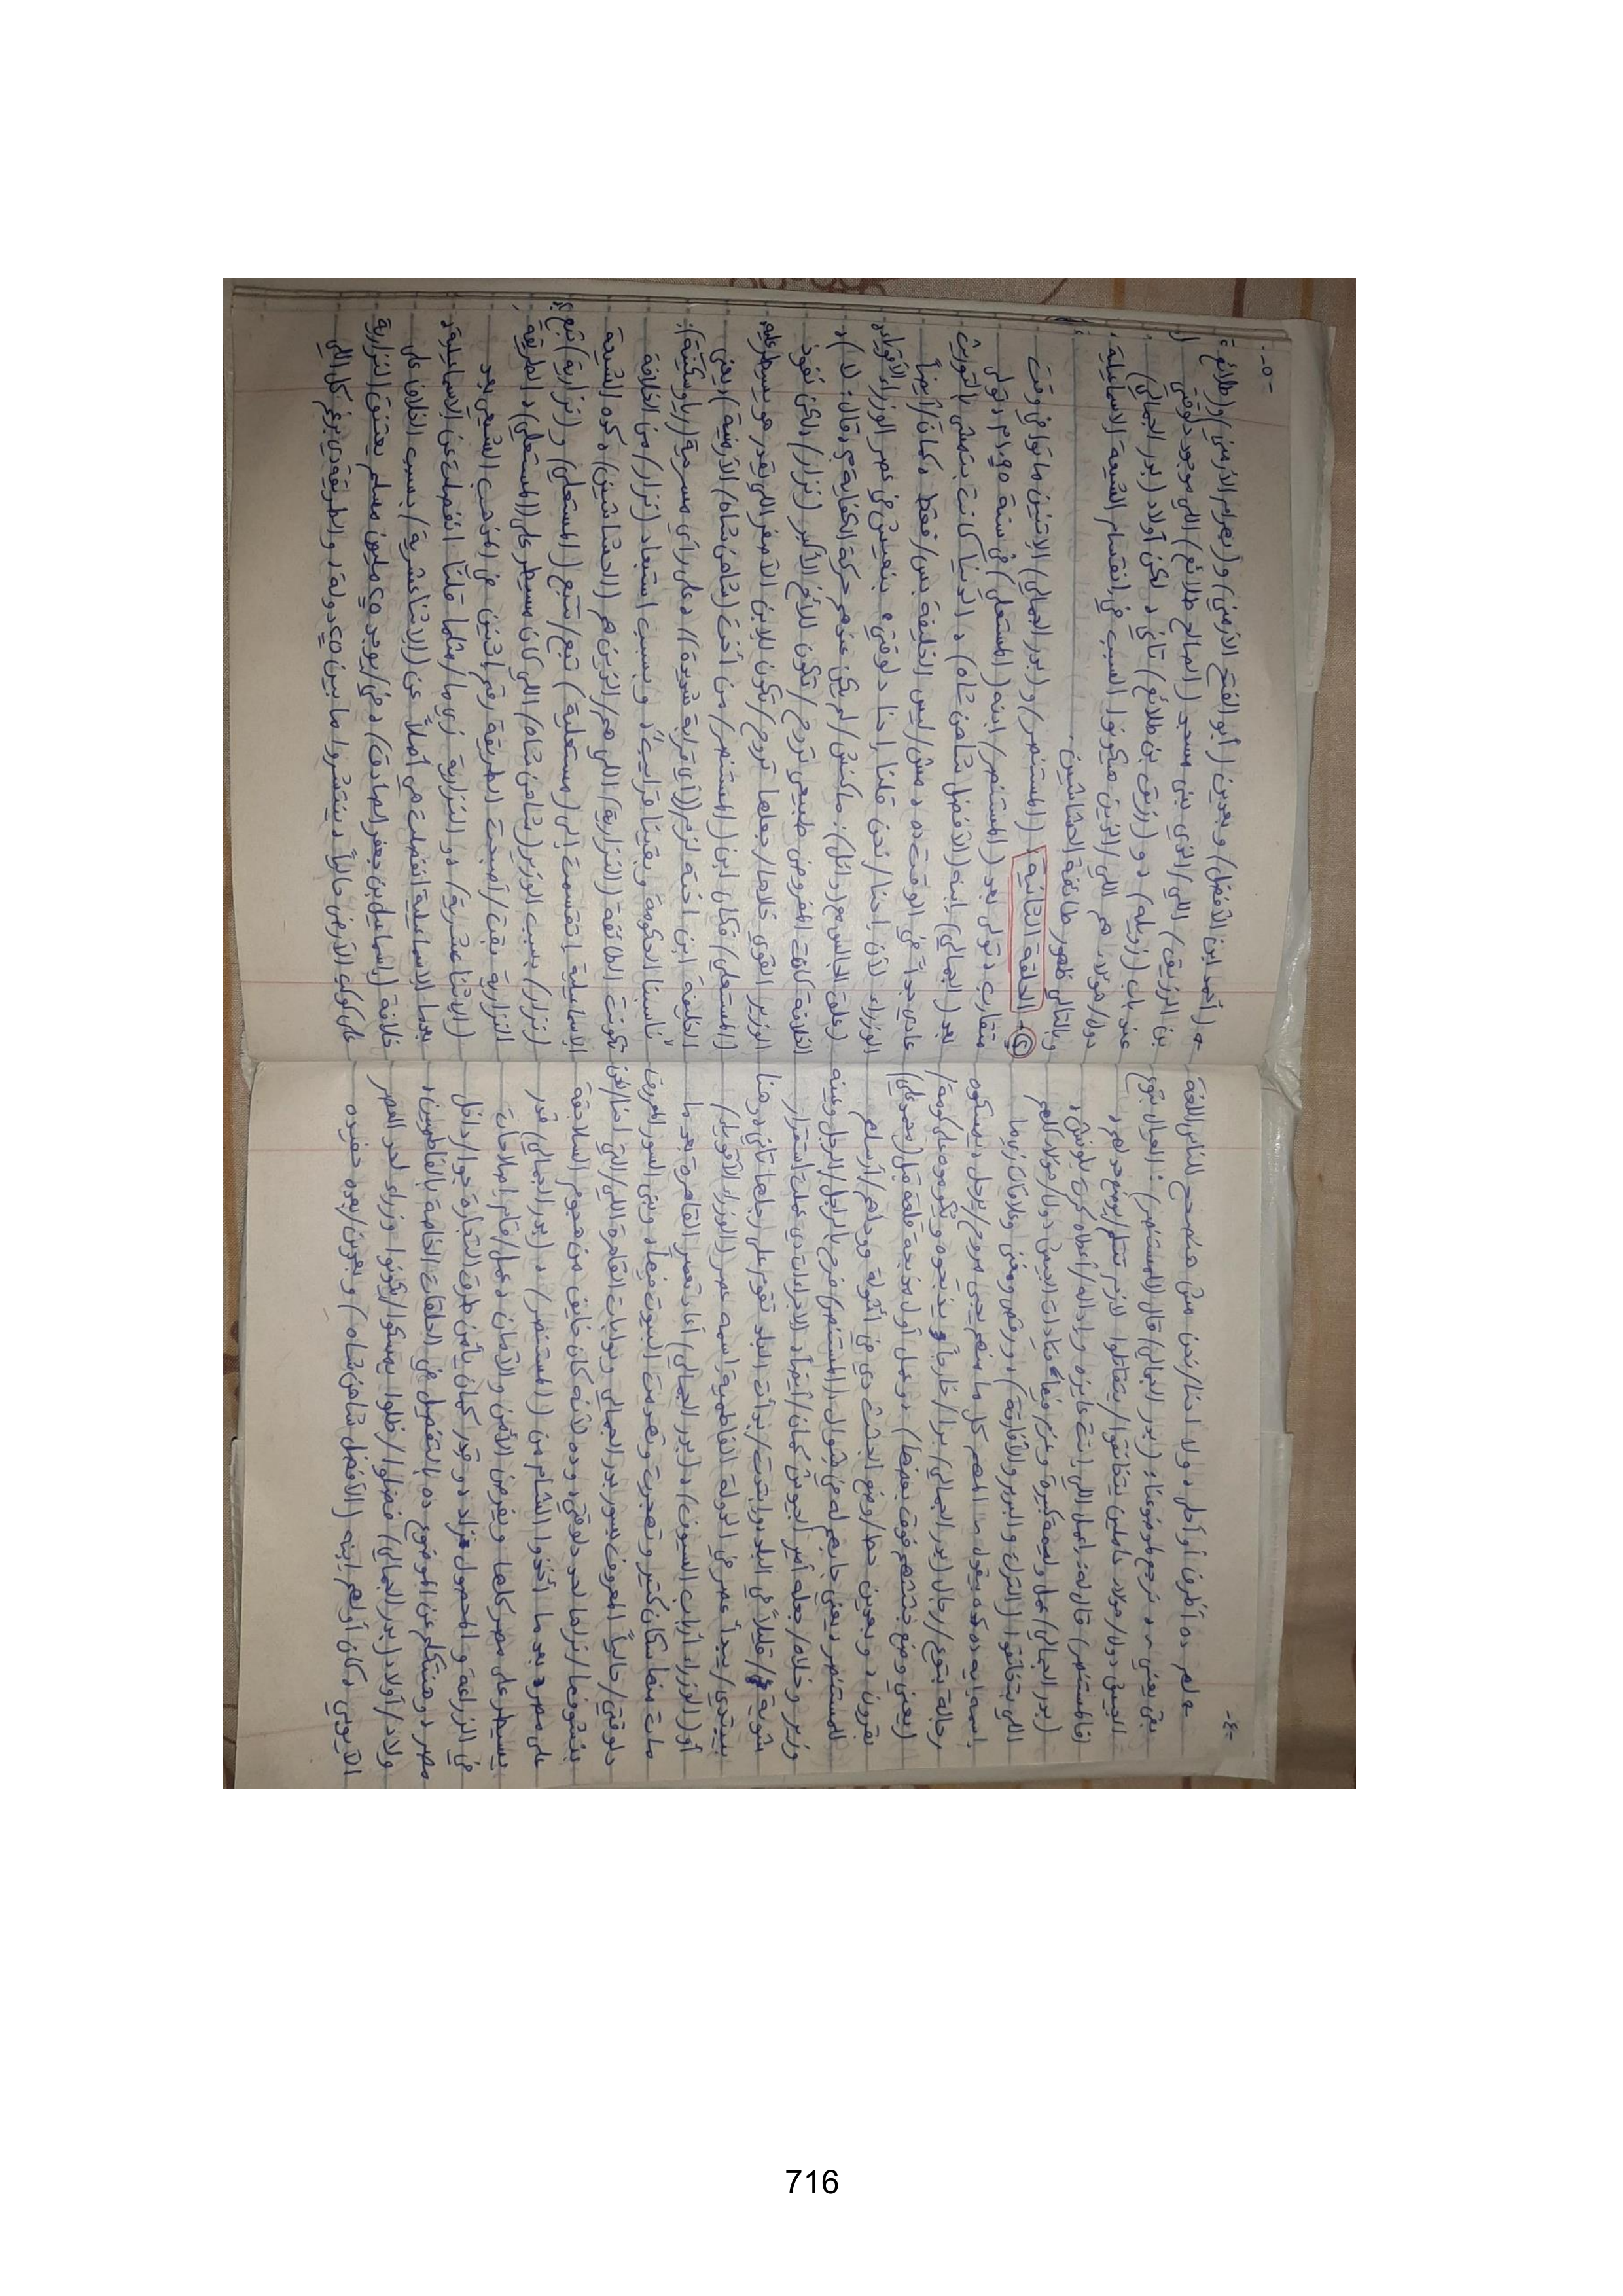 -٤-
علم ده أظرف أو أحلى، ولا احنا/نحن مش هنصحح للناس اللغة
بقى يعني، نرجع لموضوعنا: (بدر الجمالي) قال لـ(المستنصر): العيال بتوع
الجيش دول/هؤلاء عاملين يتخانقوا/يتقاتلوا لازم نتلم/يوضع حد لهم،
فـ(المستنصر) قال له: اعمل اللي انت عايزه، وإداله/أعطاه كرت بلوش،
(بدر الجمالي) عمل وليمة كبيرة وعزم فيها قيادات الجيش دول/هؤلاء كلهم
اللي بتخانقوا (الترك والبربر والأفارقة)، ورقص ومغنى وعلاقات زي ما
اسمه إيه ده كده بيقول، المهم كل ما منهم يجي مروح/يرحل، يمسكوه
رجالة بتوع/رجال (بدر الجمالي) برا/خارجاً ويذبحوه ويكوموه على كومة/
(يعني وضع جثثهم فوق بعضها)، وعمل أول مذبحة قلعة قبل (محمد علي)
بقرون، وبعدين حط/وضع الجثث دي في أشولة وودّاهم/أرسلهم
للمستنصر، يعني جابهم له في شوال، (المستنصر) فرح بالراجل/الرجل وعينه
وزير وخلاه/جعله أمير الجيوش كمان/أيضاً، الإجراءات دي عملت استقرار
شوية/قليلاً في البلد وابتدت/بدأت البلد تقوم على رجلها تاني، وهنا
بيبتدي/يبدأ عصر في الدولة الفاطمية اسمه عصر (الوزراء الأقوياء)
أو (الوزراء أرباب السيوف)، (بدر الجمالي) أعاد تعمير القاهرة بعد ما
ماتت منها سكان كتير وتهجرت وتهدمت البيوت فيها، وبنى السور المعروف
دلوقتي/حالياً المعروف بسور بدر الجمالي وبوابات القاهرة اللي/التي احنا/نحن
بنشوفها/نراها لحد دلوقتي، وده لأنه كان خايف من هجوم السلاجقة
على مصر بعد ما أخذوا الشام من (المستنصر)، (بدر الجمالي) قدر
يسيطر على مصر كلها ويفرض الأمن والأمان، وعمل/وقام إصلاحات
في الزراعة والمحصول زاد، وقدر كمان يأمن طرق التجارة جوا/داخل
مصر، وهنتكلم عن الموضوع ده بالتفصيل في الحلقات الخاصة بالفاطميين،
ولاد/أولاد (بدر الجمالي) فضلوا/ظلوا يمسكوا/يكونوا وزراء لحد العصر
الأيوبي، وكان أولهم ابنه (الأفضل شاهن شاه) وبعدين/بعده حفيده
-٥-
(أحمد ابن الأفضل) وبعدين (أبو الفتح الأرمني) و(بهرام الأرمني) و(طلائع
بن الرزيق) اللي/الذي بنى مسجد (الصالح طلائع) اللي موجود دلوقتي
عند باب (زويلة)، و(رزيق بن طلائع) تاني، لكن أولاد (بدر الجمالي)
دول/هؤلاء هم اللي/الذين هيكونوا السبب في انقسام الشيعة الإسماعيلية،
وبالتالي ظهور طائفة الحشاشين.
② - الحلقة الثانية: (المستنصر) و(بدر الجمالي) الاتنين ماتوا في وقت
متقارب، تولى بعد (المستنصر) ابنه (المستعلي) في سنة ١٠٩٤م، وتولى
بعد (الجمالي) ابنه (الأفضل شاهن شاه)، الدنيا كانت بتمشي بالتوريث
عادي جداً في الوقت ده، مش/ليس الخليفة بس/فقط، كمان/أيضاً
الوزراء لأن احنا/نحن قلنا احنا دلوقتي بنعيش في عصر الوزراء الأقوياء،
(علق الجالس مع (وائل): ماكنش/لم يكن عندهم حركة الكفاية، فقال: لا)،
الخلافة كانت المفروض طبيعي تروح/تكون للأخ الأكبر (نزار)، لكن نفوذ
الوزير القوي خلاها/جعلها تروح/تكون للابن الأصغر اللي يقدر هو يسيطر عليه،
(المستعلي) فكان ابن (المستنصر) من أخت (شاهن شاه) الأرمنية، يعني
الخليفة ابن اخته لزم ((أي قرابة شديدة))، على رأي مسرحية (ريا وسكينة):
"ناسبنا الحكومة وبقينا قرايب"، وبسبب استبعاد (نزار) من الخلافة
تكونت الطائفة (النزارية) اللي هم/الذين هم (الحشاشين)، كده الشيعة
الإسماعيلية اتقسمت إلى (مستعلية) تبع/تتبع (المستعلي) و(نزارية) تبع
(نزار) بسبب الوزير (شاهن شاه) اللي كان مسيطر على (المستعلي)، الطريقة
النزارية بقت/أصبحت الطريقة رقم اتنين في المذهب الشيعي بعد
(الاثنا عشرية)، و النزارية زي ما/مثلما قلنا انفصلت عن الإسماعيلية،
بعدما الإسماعيلية انفصلت هي أصلاً عن (الاثنا عشرية) بسبب الخلاف على
خلافة (إسماعيل بن جعفر الصادق)، في/يوجد ١٥ مليون مسلم يعتنق النزارية
على كوكب الأرض حالياً بينتشروا ما بين ٢٥ دولة، والطريقة دي برغم كل اللي
716